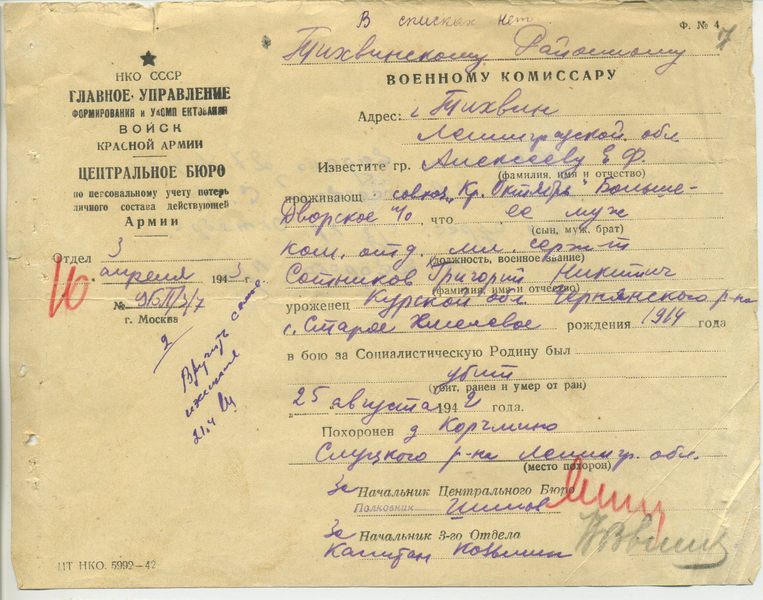 В списках нет
Ф. № 4
7
Тихвинскому Районному
ВОЕННОМУ КОМИССАРУ
НКО СССР
ГЛАВНОЕ УПРАВЛЕНИЕ
ФОРМИРОВАНИЯ и УКОМПЛЕКТОВАНИЯ
ВОЙСК
КРАСНОЙ АРМИИ
ЦЕНТРАЛЬНОЕ БЮРО
по персональному учету потерь
личного состава действующей
Армии
Отдел 3
10 апреля 1943 г.
№
г. Москва
2
Вручить
21.4
Адрес: г Тихвин
Ленинградской обл
Известите гр. Алексееву Е. Ф.
(фамилия, имя и отчество)
проживающ совхоз „Кр. Октябрь" Больше-
Дворское п/о, что ее муж
(сын, муж, брат)
ком. отд. мл. серж-т
(должность, военное звание)
Сотников Григорий Никитич
(фамилия, имя и отчество)
уроженец Курской обл. Чернянского р-на
с. Старое Хмелевое рождения 1914 года
в бою за Социалистическую Родину был
убит
(убит, ранен и умер от ран)
25 августа 1942 года.
Похоронен д Корчмино
Слуцкого р-на Ленингр. обл.
(место похорон)
За Начальник Центрального Бюро
Полковник
За Начальник 3-го Отдела
Капитан Козьмин
ЦТ НКО. 5992—42